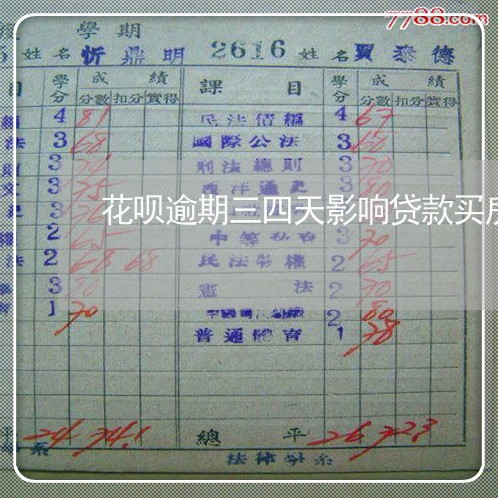 7788.com
學期
姓名 忻鼎明 2616 姓名 賈泰德
目 學分 成績 課目 學分 成績
分數 扣分 實得 分數 扣分 實得
4 81 民法債編 4 67
法 3 68 國際公法 3 60
3 刑法總則 3 70
3 75 西洋通史 3 80
花呗逾期三四天影响贷款买房
2 65 中等私有 3 70
法 2 68 68 民法物權 2 65
3 80 憲法 2 70
1 70 2 80
普通體育 1 78
平 24 74.1 總平 26 72.3
系 法律學系